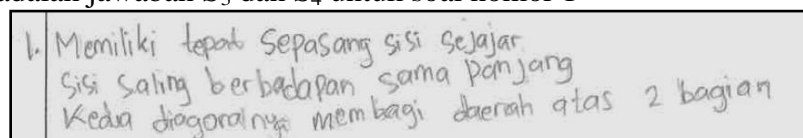 adalah jawaban S3 dan S4 untuk soal nomor 1
1. Memiliki tepat Sepasang sisi sejajar
Sisi saling berhadapan sama panjang
Kedua diagoralnya membagi daerah atas 2 bagian